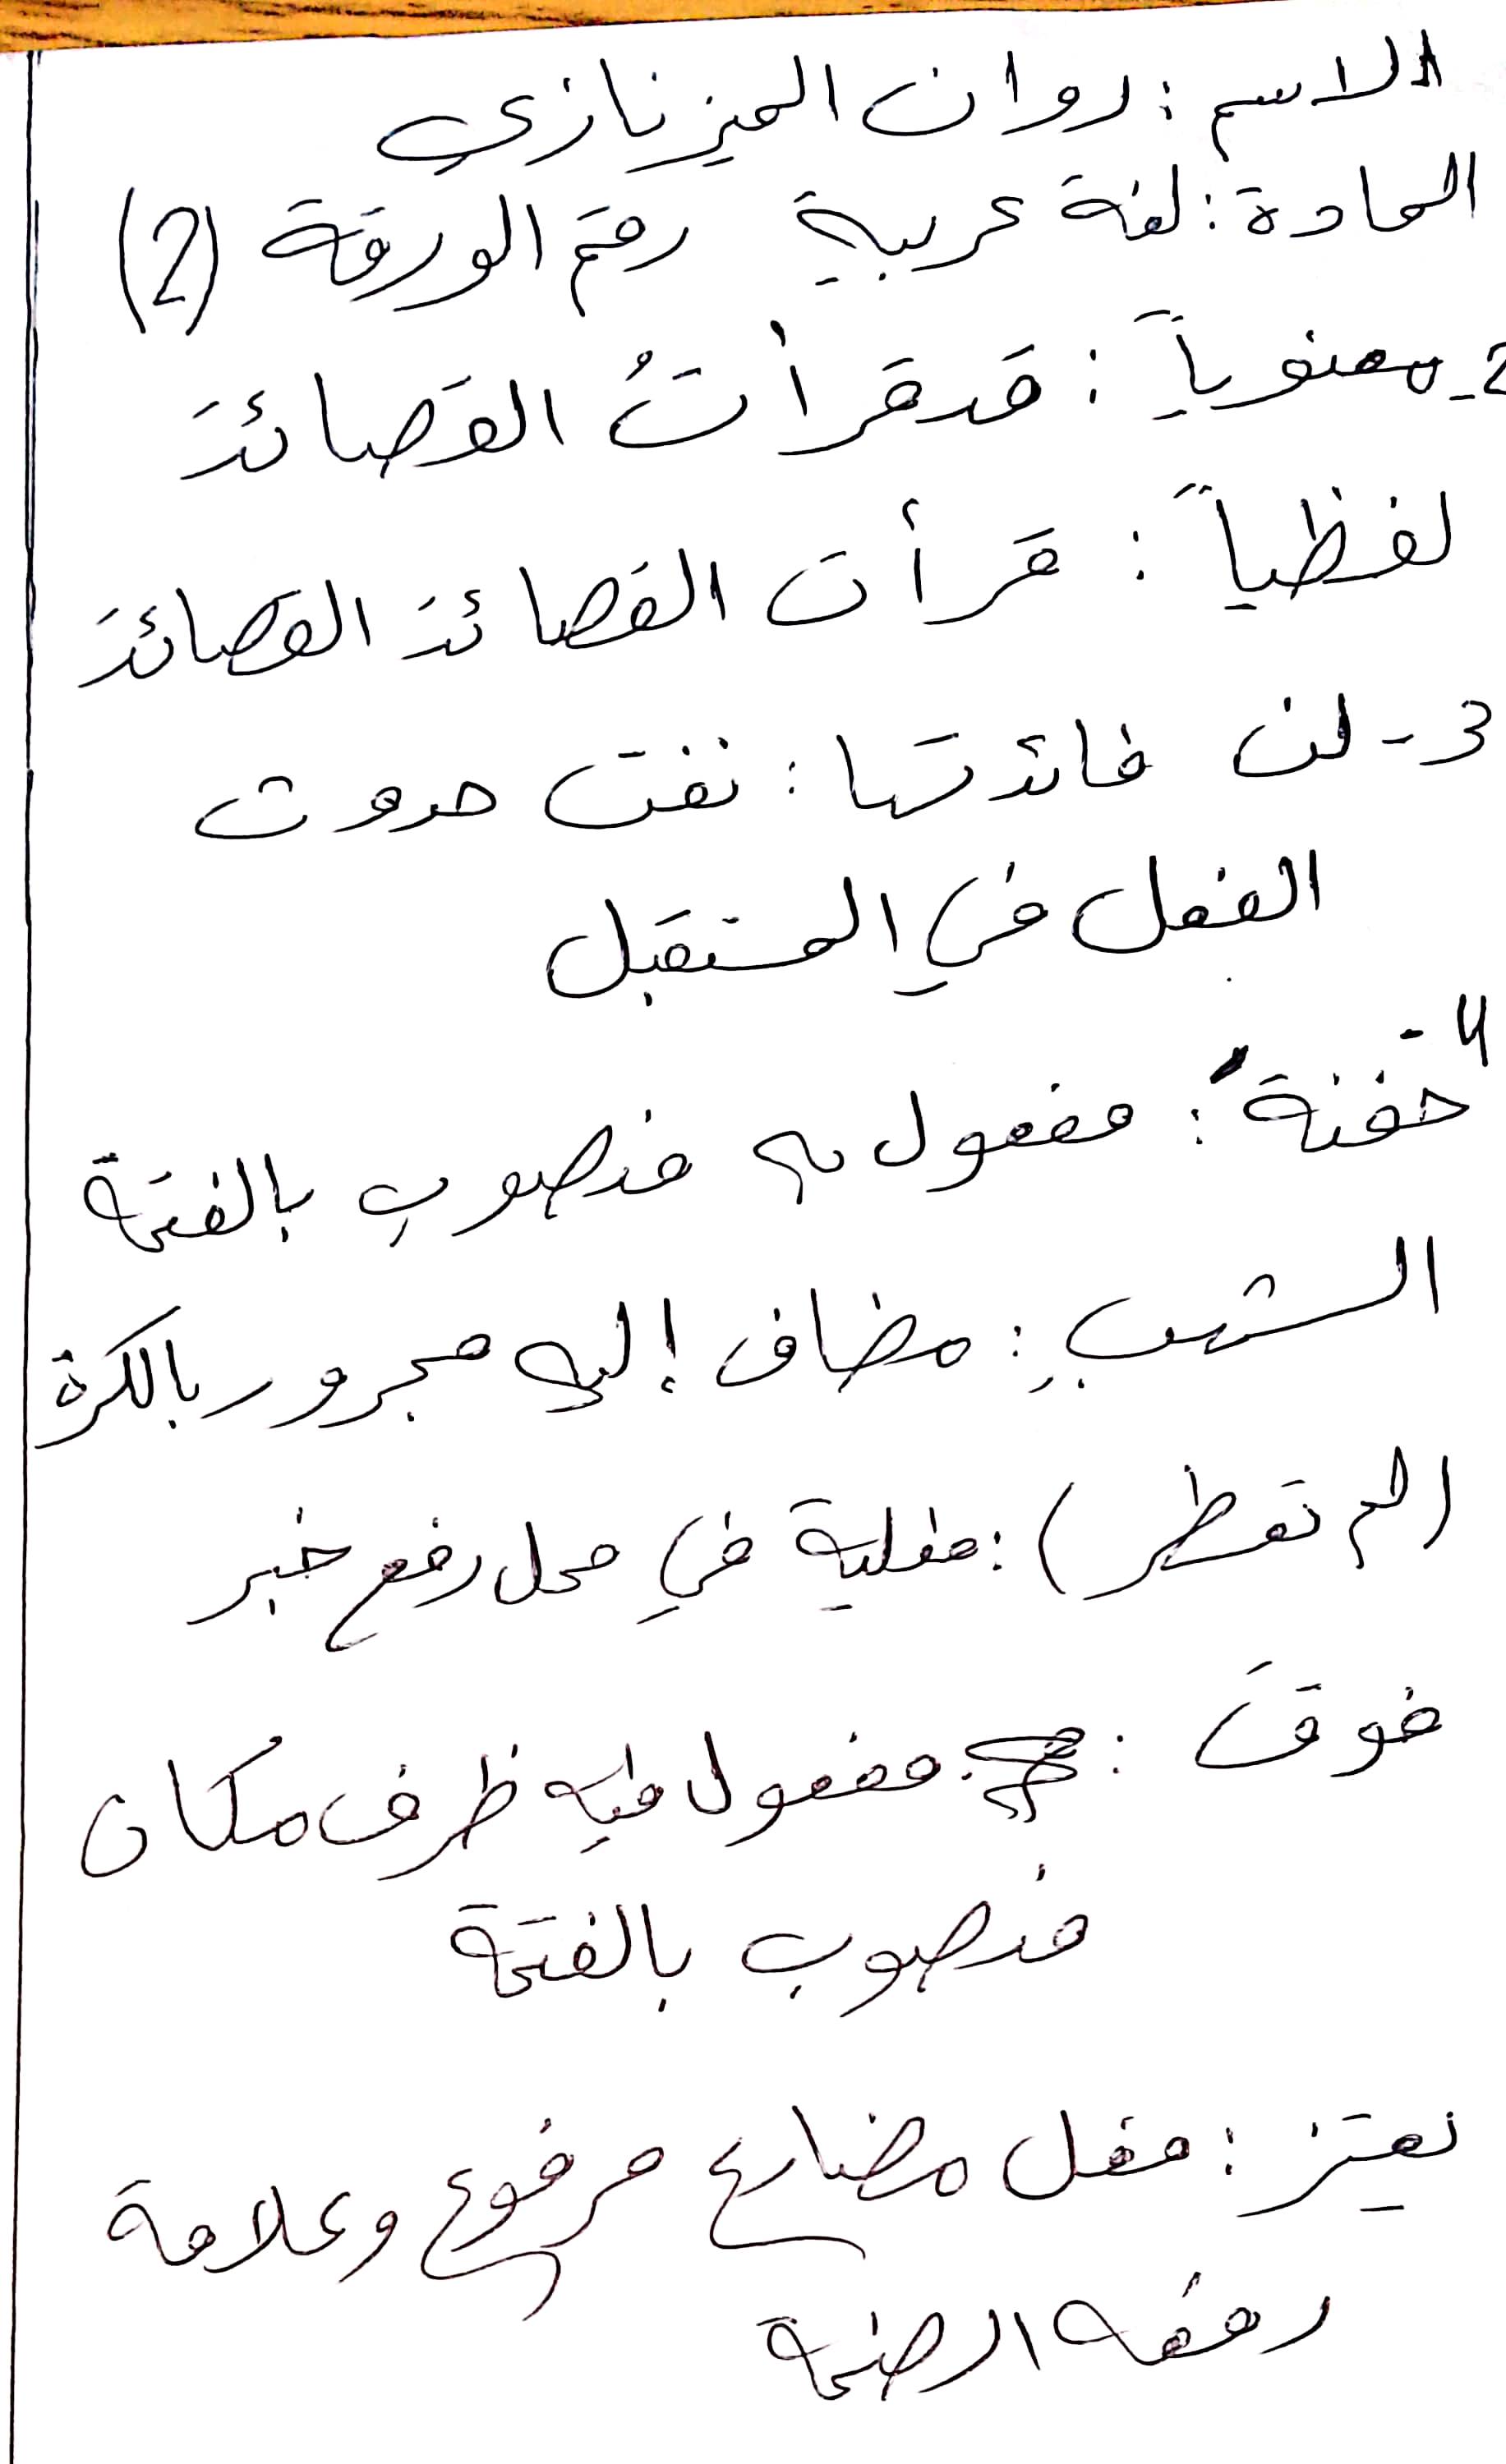 الاسم : روان الميزنازي
المادة : لغة عربية رقم الورقة (2)
2- معنوياً : قد قرأتُ القصائدَ
لفظياً : قرأت القصائدَ القصائدَ
3- لن فائدتها : نفي حدوث
الفعل في المستقبل
4-
حفنة : مفعول به منصوب بالفتحة
الشهبِ : مضاف إليه مجرور بالكسرة
(لم تمطر) : فعلية في محل رفع خبر
فوقَ : مفعول فيه ظرف مكان
منصوب بالفتحة
نعتز : فعل مضارع مرفوع وعلامة
رفعه الضمة